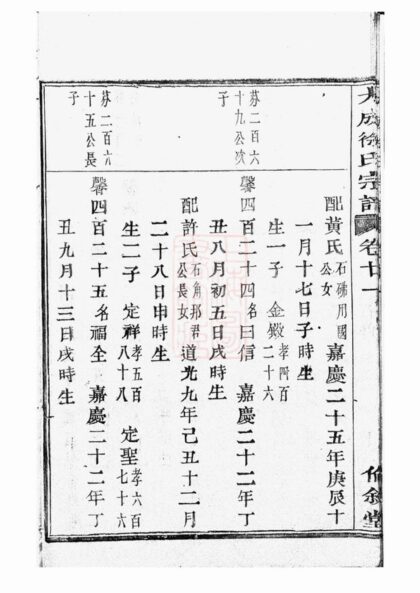 徐氏宗譜 卷七十一 倫敘堂
配黃氏石磡用國公女 嘉慶二十五年庚辰十
一月十七日子時生
生一子 金鐓孝四百二十六
芬二百六十九公次子
馨四百二十四名曰信 嘉慶二十二年丁
丑八月初五日戌時生
配許氏石角邦君公長女 道光九年己丑十二月
二十八日申時生
生二子 定祥孝五百八十八 定聖孝六百七十六
芬二百六十五公長子
馨四百二十五名福全 嘉慶二十二年丁
丑九月十三日戌時生